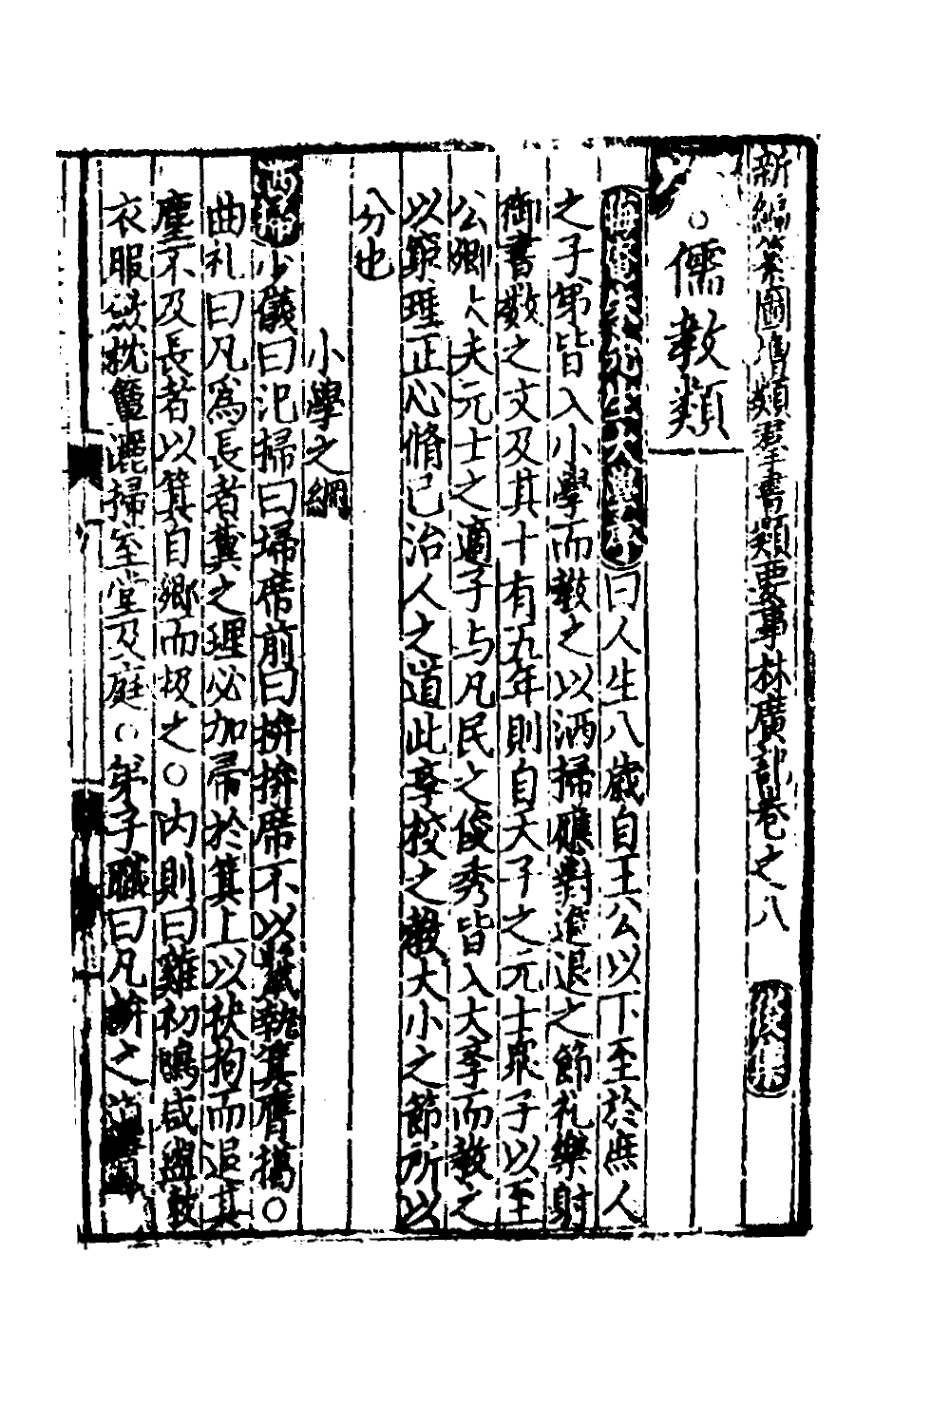 新編纂圖增類羣書類要事林廣記卷之八
○儒教類
曰人生八歲自王公以下至於庶人
之子弟皆入小學而教之以洒掃應對進退之節礼樂射
御書數之文及其十有五年則自天子之元士眾子以至
公卿大夫元士之適子与凡民之俊秀皆入大斈而教之
以窮理正心脩己治人之道此斈校之教大小之節所以
分也
小學之綱
少儀曰氾掃曰埽席前曰拚拚席不以鬛執箕膺擖○
曲礼曰凡爲長者糞之理必加帚於箕上以袂拘而退其
塵不及長者以箕自鄉而扱之○内則曰雞初鳴咸盥漱
衣服斂枕簟灑掃室堂及庭○弟子職曰凡拚之